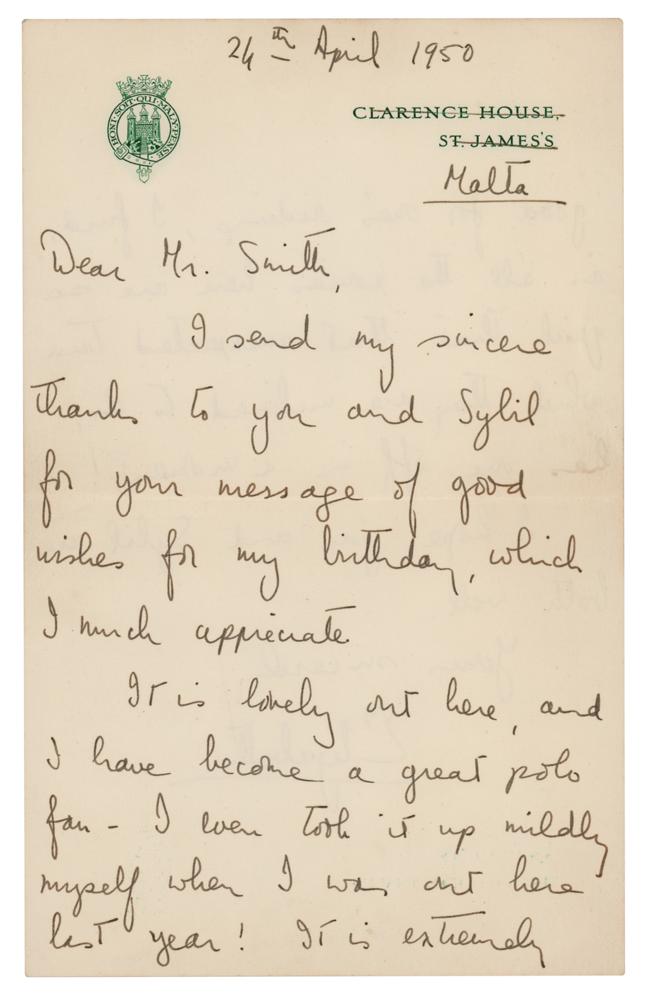 24th April 1950
HONI·SOIT·QUI·MAL·Y·PENSE
CLARENCE HOUSE,
ST. JAMES'S
Malta
Dear Mr. Smith,
I send my sincere
thanks to you and Sybil
for your message of good
wishes for my birthday, which
I much appreciate.
It is lovely out here, and
I have become a great polo
fan - I even took it up mildly
myself when I was out here
last year! It is extremely